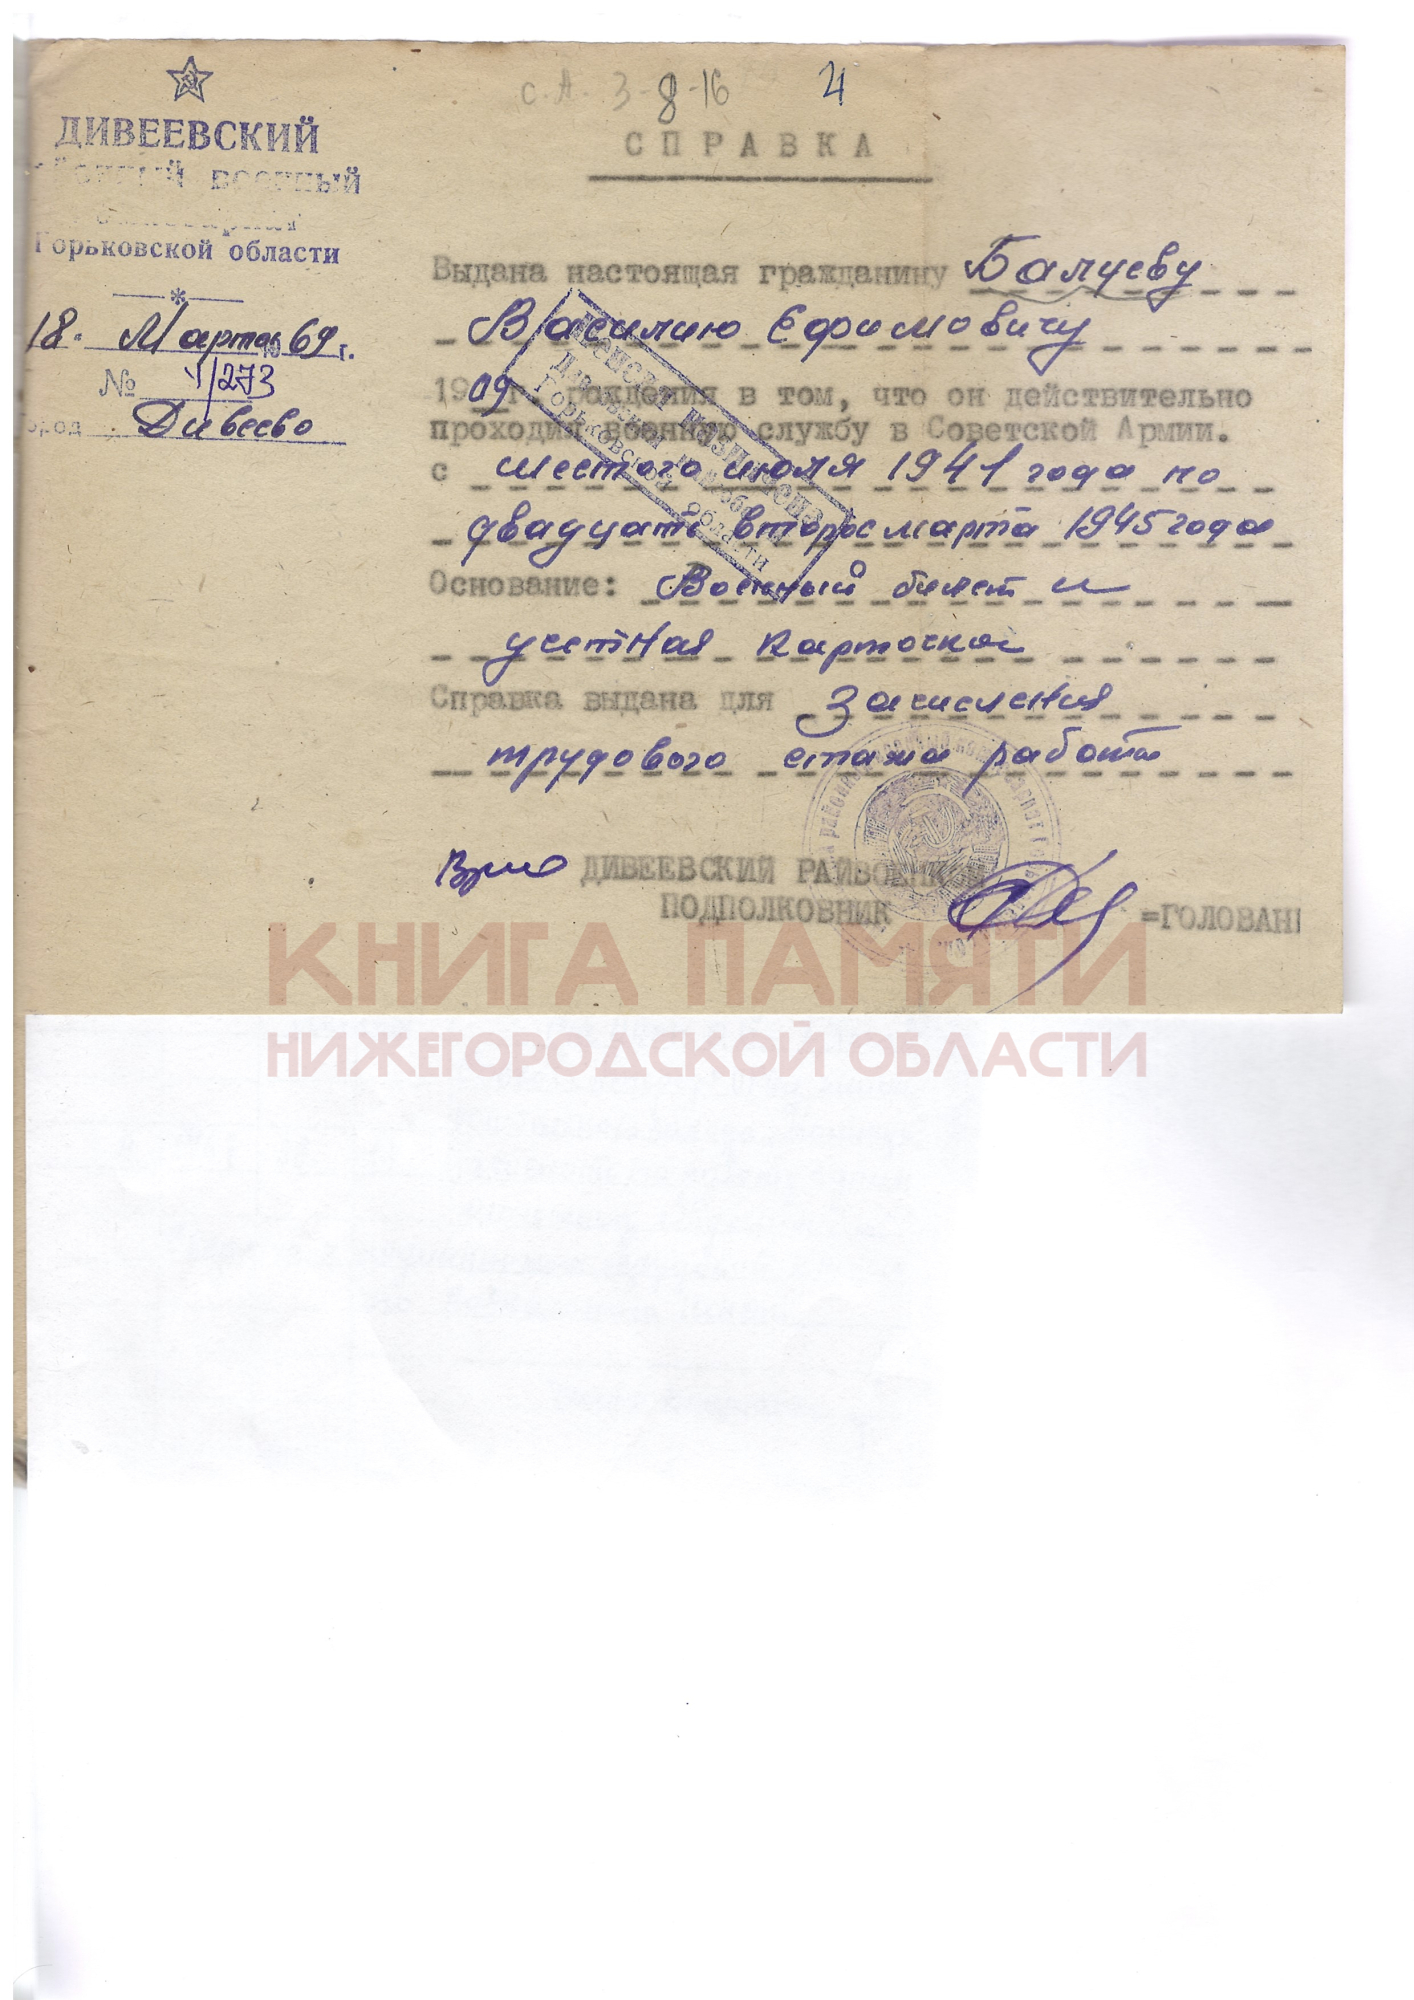 ДИВЕЕВСКИЙ
ВОЕННЫЙ
Горьковской области
18. Марта 69 г.
№ V/273
Дивеево
с. А. 3-8-16
СПРАВКА
Выдана настоящая гражданину Балуеву
Василию Ефимовичу
1909 г. рождения в том, что он действительно
проходил военную службу в Советской Армии.
с шестого июля 1941 года по
двадцать второе марта 1945 года
Основание: Военный билет и
учетная карточка
Справка выдана для Зачисления
трудового стажа работы
Пенсия назначена
Горьковской области
Врио ДИВЕЕВСКИЙ РАЙВОЕНКОМ
ПОДПОЛКОВНИК =ГОЛОВАН
КНИГА ПАМЯТИ
НИЖЕГОРОДСКОЙ ОБЛАСТИ